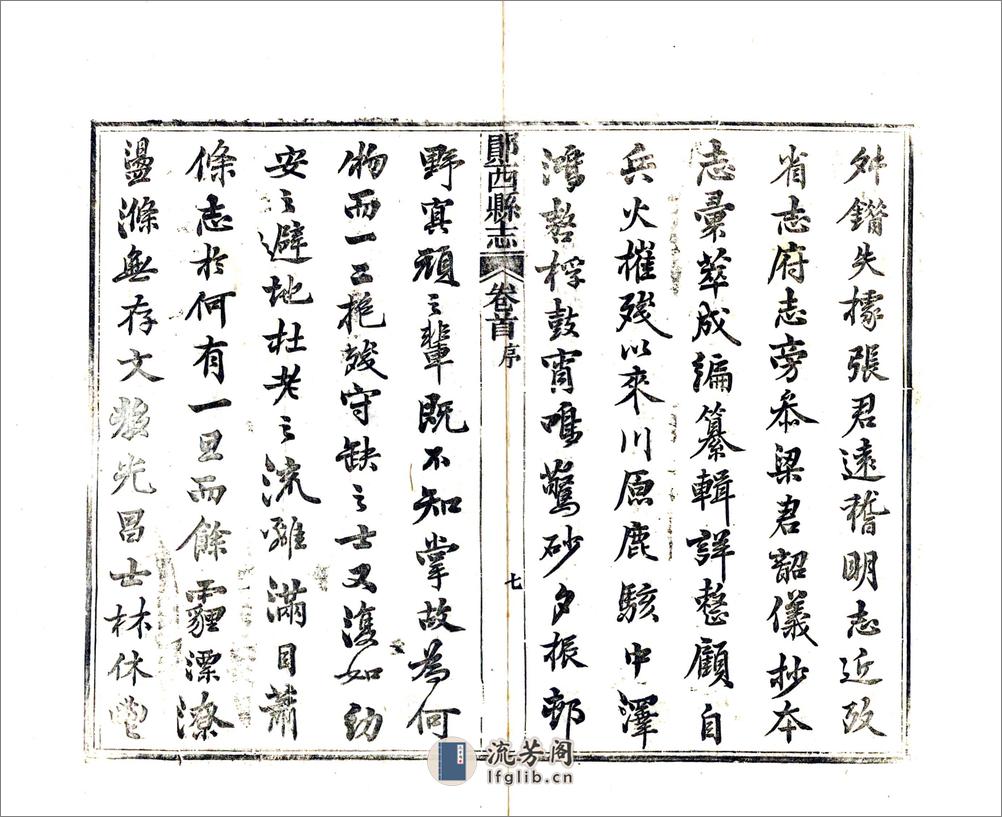 舛錯失據張君遠稽明志近攷
省志府志旁叅梁君韶儀抄本
志彙萃成編纂輯詳整顧自
兵火摧殘以來川原鹿駭中澤
鴻嗸桴鼓宵鳴驚砂夕振鄙
野寘頑之輩既不知掌故為何
物而一二抱殘守缺之士又復如幼
安之避地杜老之流離滿目蕭
條志於何有一旦而餘霾漂潦
盪滌無存文教光昌士林休
鄖西縣志
卷首
序
七
流芳阁
lfglib.cn